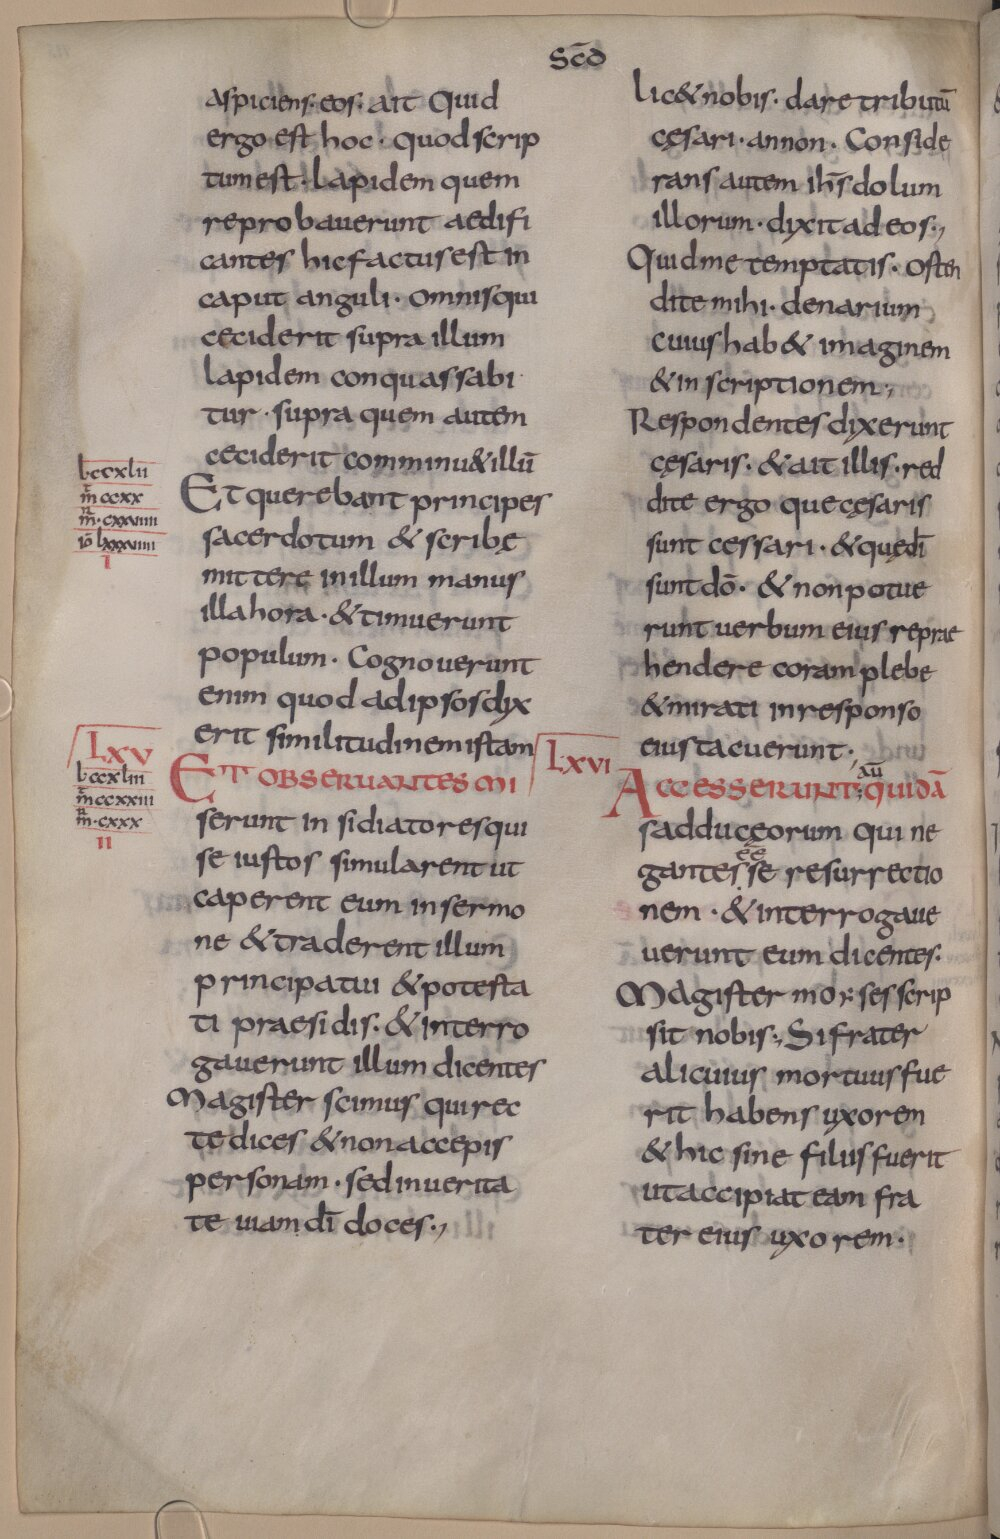 Scd̄
aspiciens·eos·ait Quid
ergo est hoc· quod scrip
tum est· Lapidem quem
reprobauerunt aedifi
cantes hic factus est in
caput anguli· omnis qui
ceciderit supra illum
lapidem conquassabi
tur· supra quem autem
ceciderit comminu&illū
bccxlii
m̄ccxx
m̄·cxxuiiii
iō lxxxuiiii
I
Et querebant principes
sacerdotum & scribę
mittere in illum manus
illa hora·&timuerunt
populum· Cognouerunt
enim quod ad ipsos dix
erit similitudinem istam
LXV
bccxliii
m̄ccxxiii
m̄·cxxx
II
ET OBSERUANTES MI
serunt in sidiatores qui
se iustos simularent ut
caperent eum in sermo
ne &traderent illum
principatui &potesta
ti praesidis·&interro
gauerunt illum dicentes
Magister scimus qui rec
te dices &non accepis
personam·sed in uerita
te uiam dī doces·,
Lic& nobis· dare tributū
cęsari·annon· Conside
rans autem ihs̄ dolum
illorum·dixit ad eos·,
Quid me temptatis· osten
dite mihi· denarium
cuius hab& imaginem
&in scriptionem·,
Respondentes dixerunt
cęsaris·&ait illis·red
dite ergo que cęsaris
sunt cessari·&quędī
sunt dō· &non potue
runt uerbum eius reprae
hendere coram plebe
&mirati in responso
eius tacuerunt·,
LXVI
aū
ACCESSERUNT quidā
sadduceorum qui ne
ēē
gantes se resurrectio
nem·&interrogaue
uerunt eum dicentes·
Magister morses scrip
sit nobis·, Si frater
alicuius mortuus fue
rit habens uxorem
&hic sine filiis fuerit
ut accipiat eam fra
ter eius uxorem·